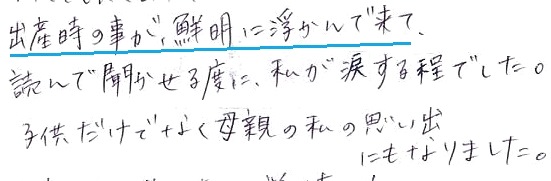 出産時の事が、鮮明に浮かんで来て、
読んで聞かせる度に、私が涙する程でした。
子供だけでなく母親の私の思い出
にもなりました。